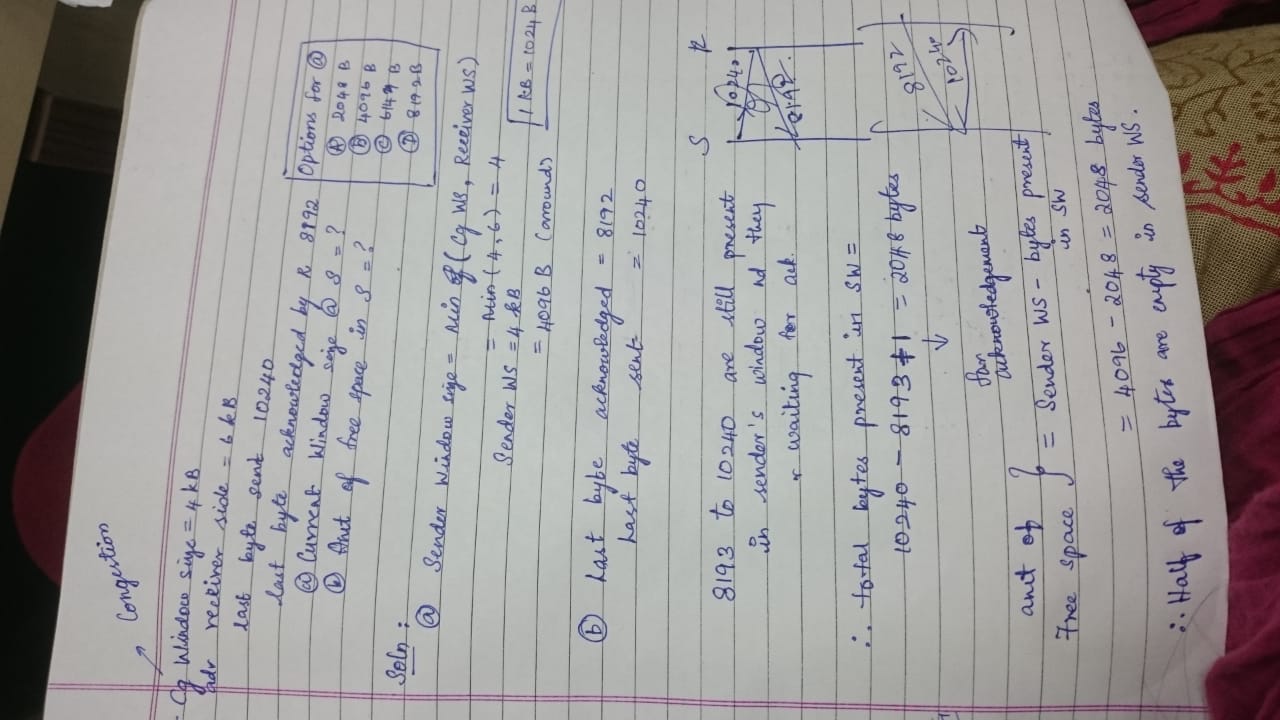 Congestion
- Cg Window size = 4 kB
adv receiver side = 6 kB
last byte sent 10240
last byte acknowledged by R 8192
ⓐ Current Window size @ S = ?
ⓑ Amt of free space in S = ?
Options for ⓐ
Ⓐ 2048 B
Ⓑ 4096 B
Ⓒ 6144 B
Ⓓ 8192 B
Soln :
ⓐ Sender Window size = Min of (Cg WS, Receiver WS)
= Min (4, 6) = 4
Sender WS = 4 kB
= 4096 B (arround)
1 kB = 1024 B
ⓑ Last byte acknowledged = 8192
Last byte sent = 10240
S R
10240
8192
8193 to 10240 are still present
in sender's window nd they
r waiting for ack.
∴ total bytes present in SW =
10240 - 8193 + 1 = 2048 bytes
↓
for
acknowledgement
8192
10240
amt of
Free space } = Sender WS - bytes present
in SW
= 4096 - 2048 = 2048 bytes
∴ Half of the bytes are empty in sender WS.